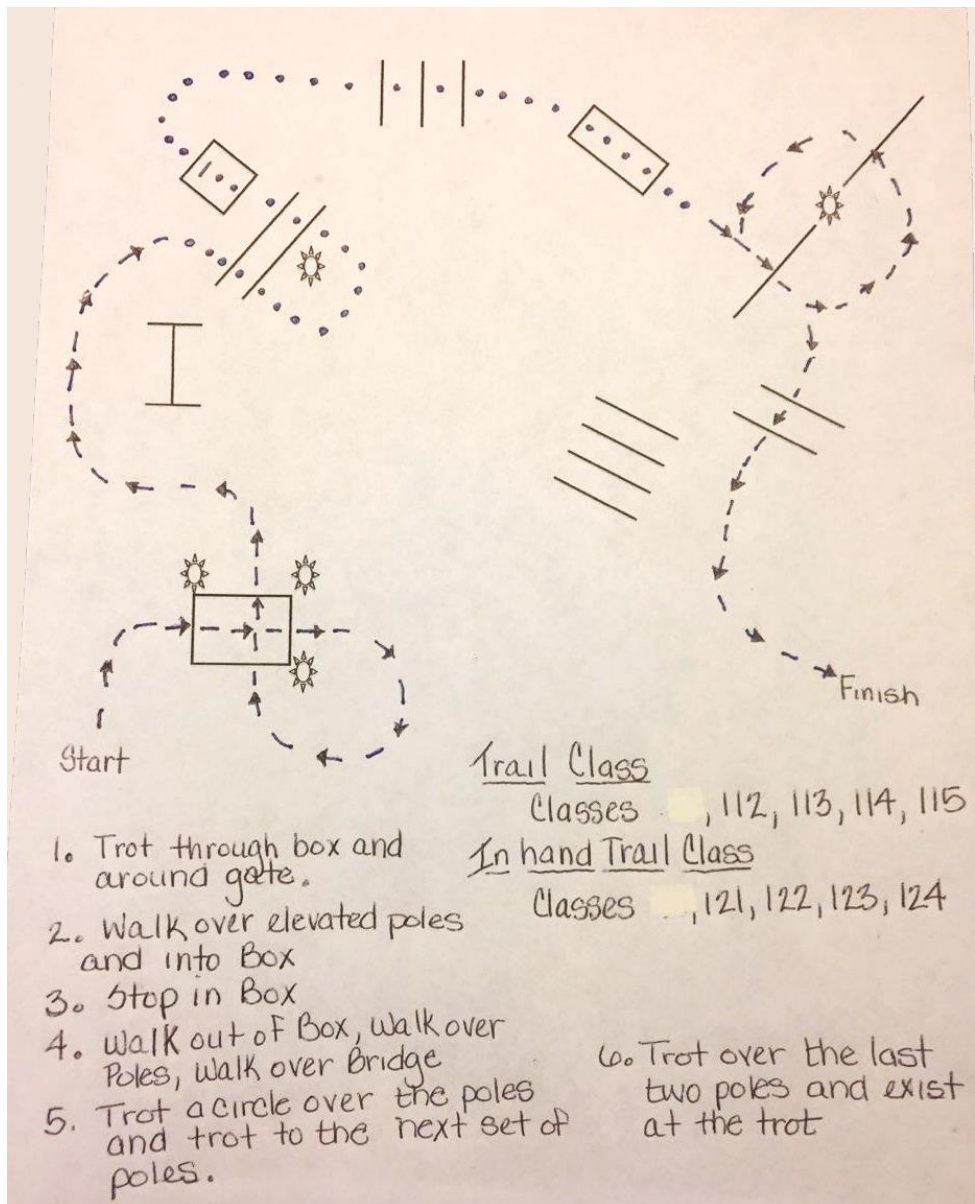 Finish
Start
Trail Class
Classes , 112, 113, 114, 115
In hand Trail Class
Classes , 121, 122, 123, 124
1. Trot through box and
around gate.
2. Walk over elevated poles
and into Box
3. Stop in Box
4. Walk out of Box, Walk over
Poles, Walk over Bridge
5. Trot a circle over the poles
and trot to the next set of
poles.
6. Trot over the last
two poles and exist
at the trot